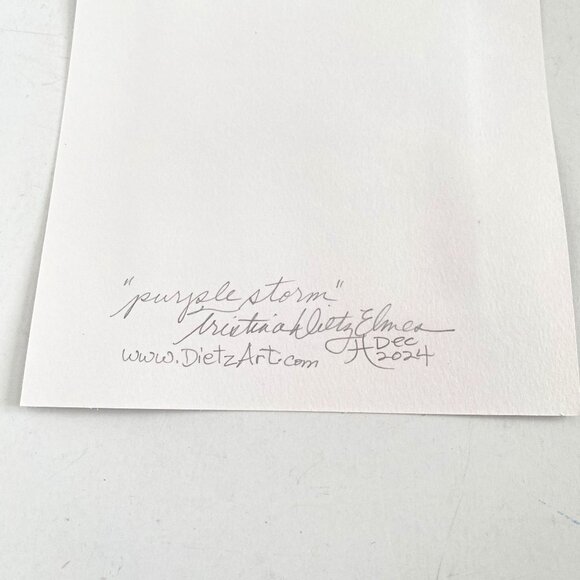 "purple storm"
Tristina Dietz Elmes
www.DietzArt.com
Dec
2024